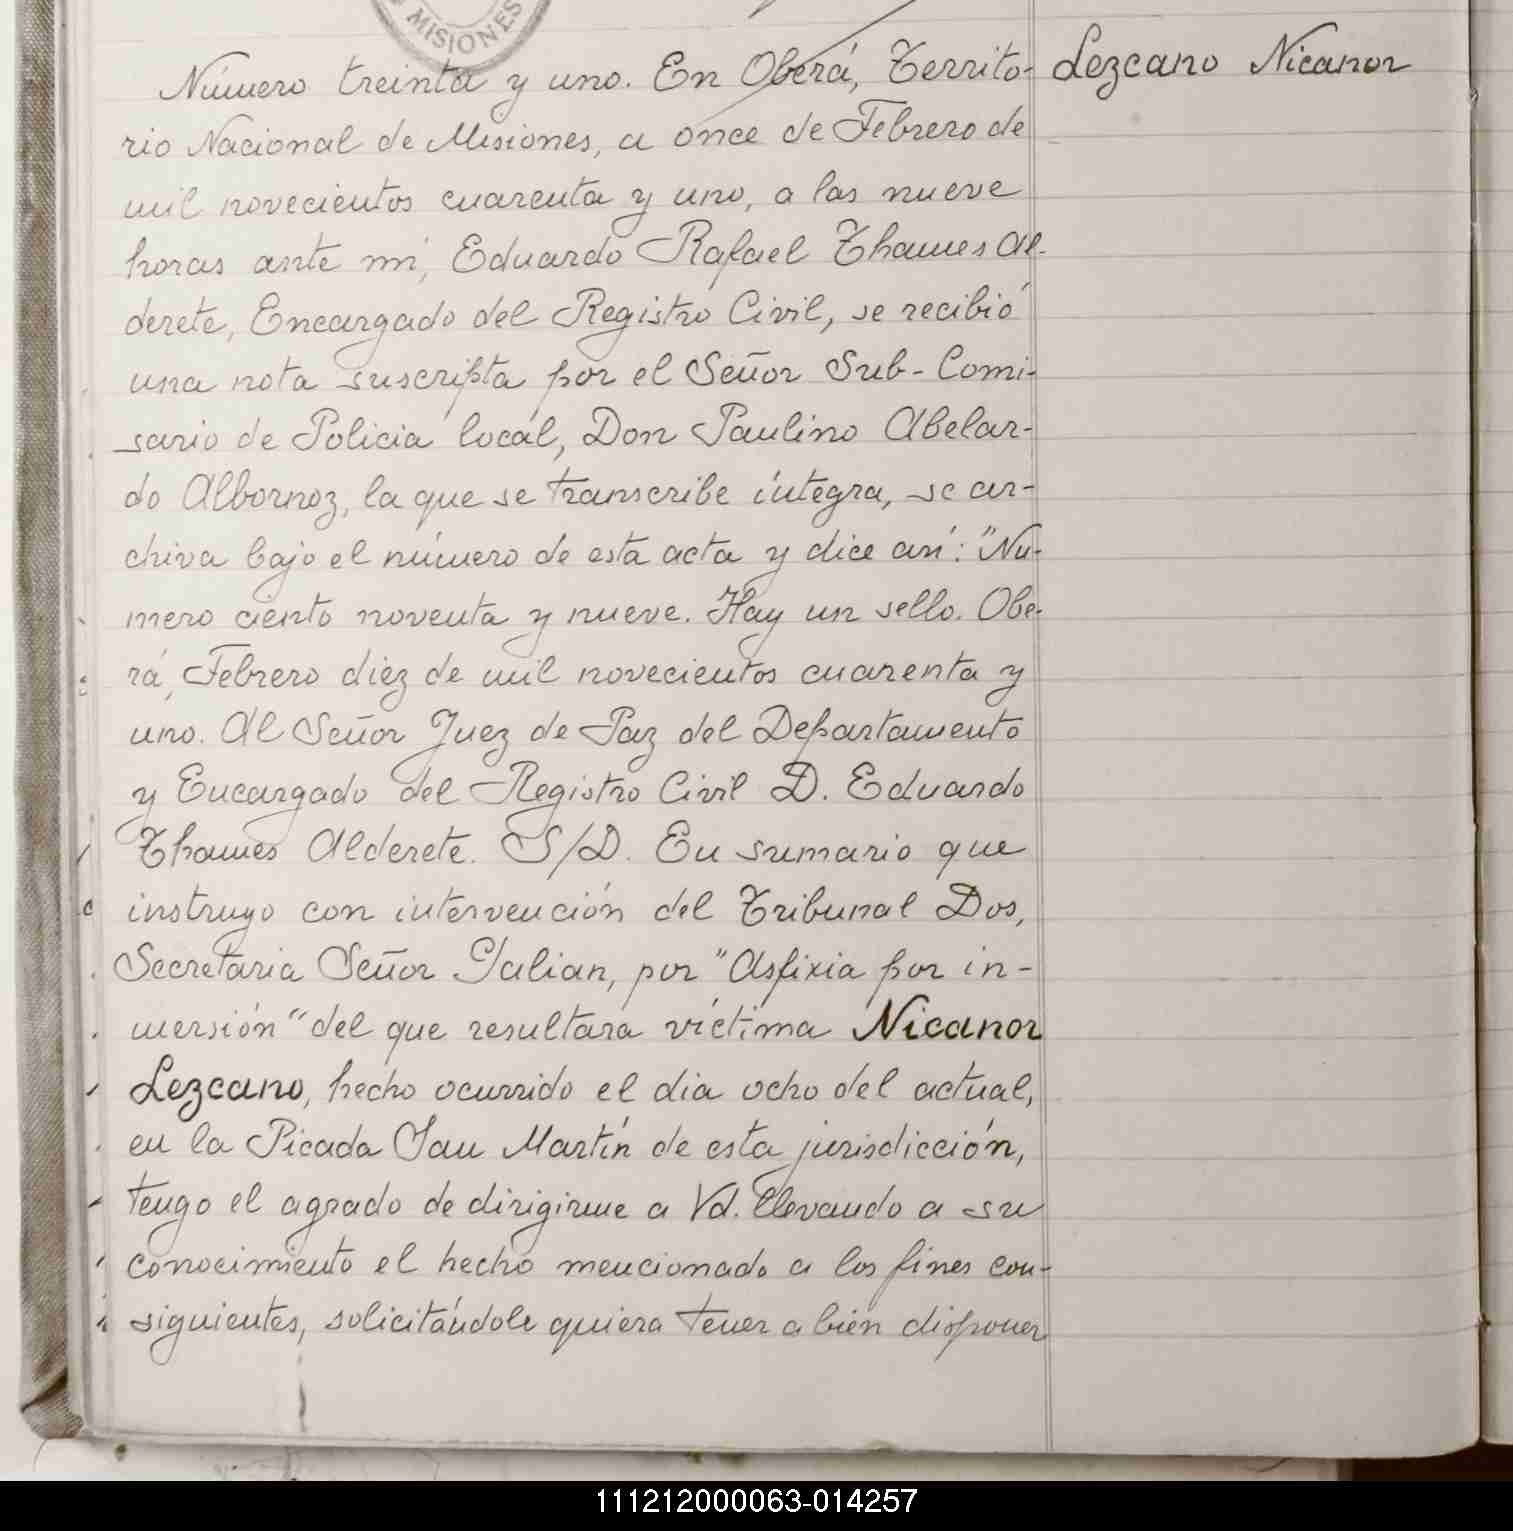 MISIONES
Número treinta y uno. En Oberá, Territo- Lezcano Nicanor
rio Nacional de Misiones, a once de Febrero de
mil novecientos cuarenta y uno, a las nueve
horas ante mí, Eduardo Rafael Thames Al-
derete, Encargado del Registro Civil, se recibió
una nota suscripta por el Señor Sub-Comi-
sario de Policia local, Don Paulino Abelar-
do Albornoz, la que se transcribe íntegra, se ar-
chiva bajo el número de esta acta y dice así: "Nu-
mero ciento noventa y nueve. Hay un sello. Obe-
rá, Febrero diez de mil novecientos cuarenta y
uno. Al Señor Juez de Paz del Departamento
y Encargado del Registro Civil D. Eduardo
Thames Alderete. S/D. En sumario que
instruyo con intervención del Tribunal Dos,
Secretaria Señor Galian, por "Asfixia por in-
mersión" del que resultara víctima Nicanor
Lezcano, hecho ocurrido el dia ocho del actual,
en la Picada San Martín de esta jurisdicción,
tengo el agrado de dirigirme a Vd. llevando a su
conocimiento el hecho mencionado a los fines con-
siguientes, solicitándole quiera tener a bien disponer
111212000063-014257